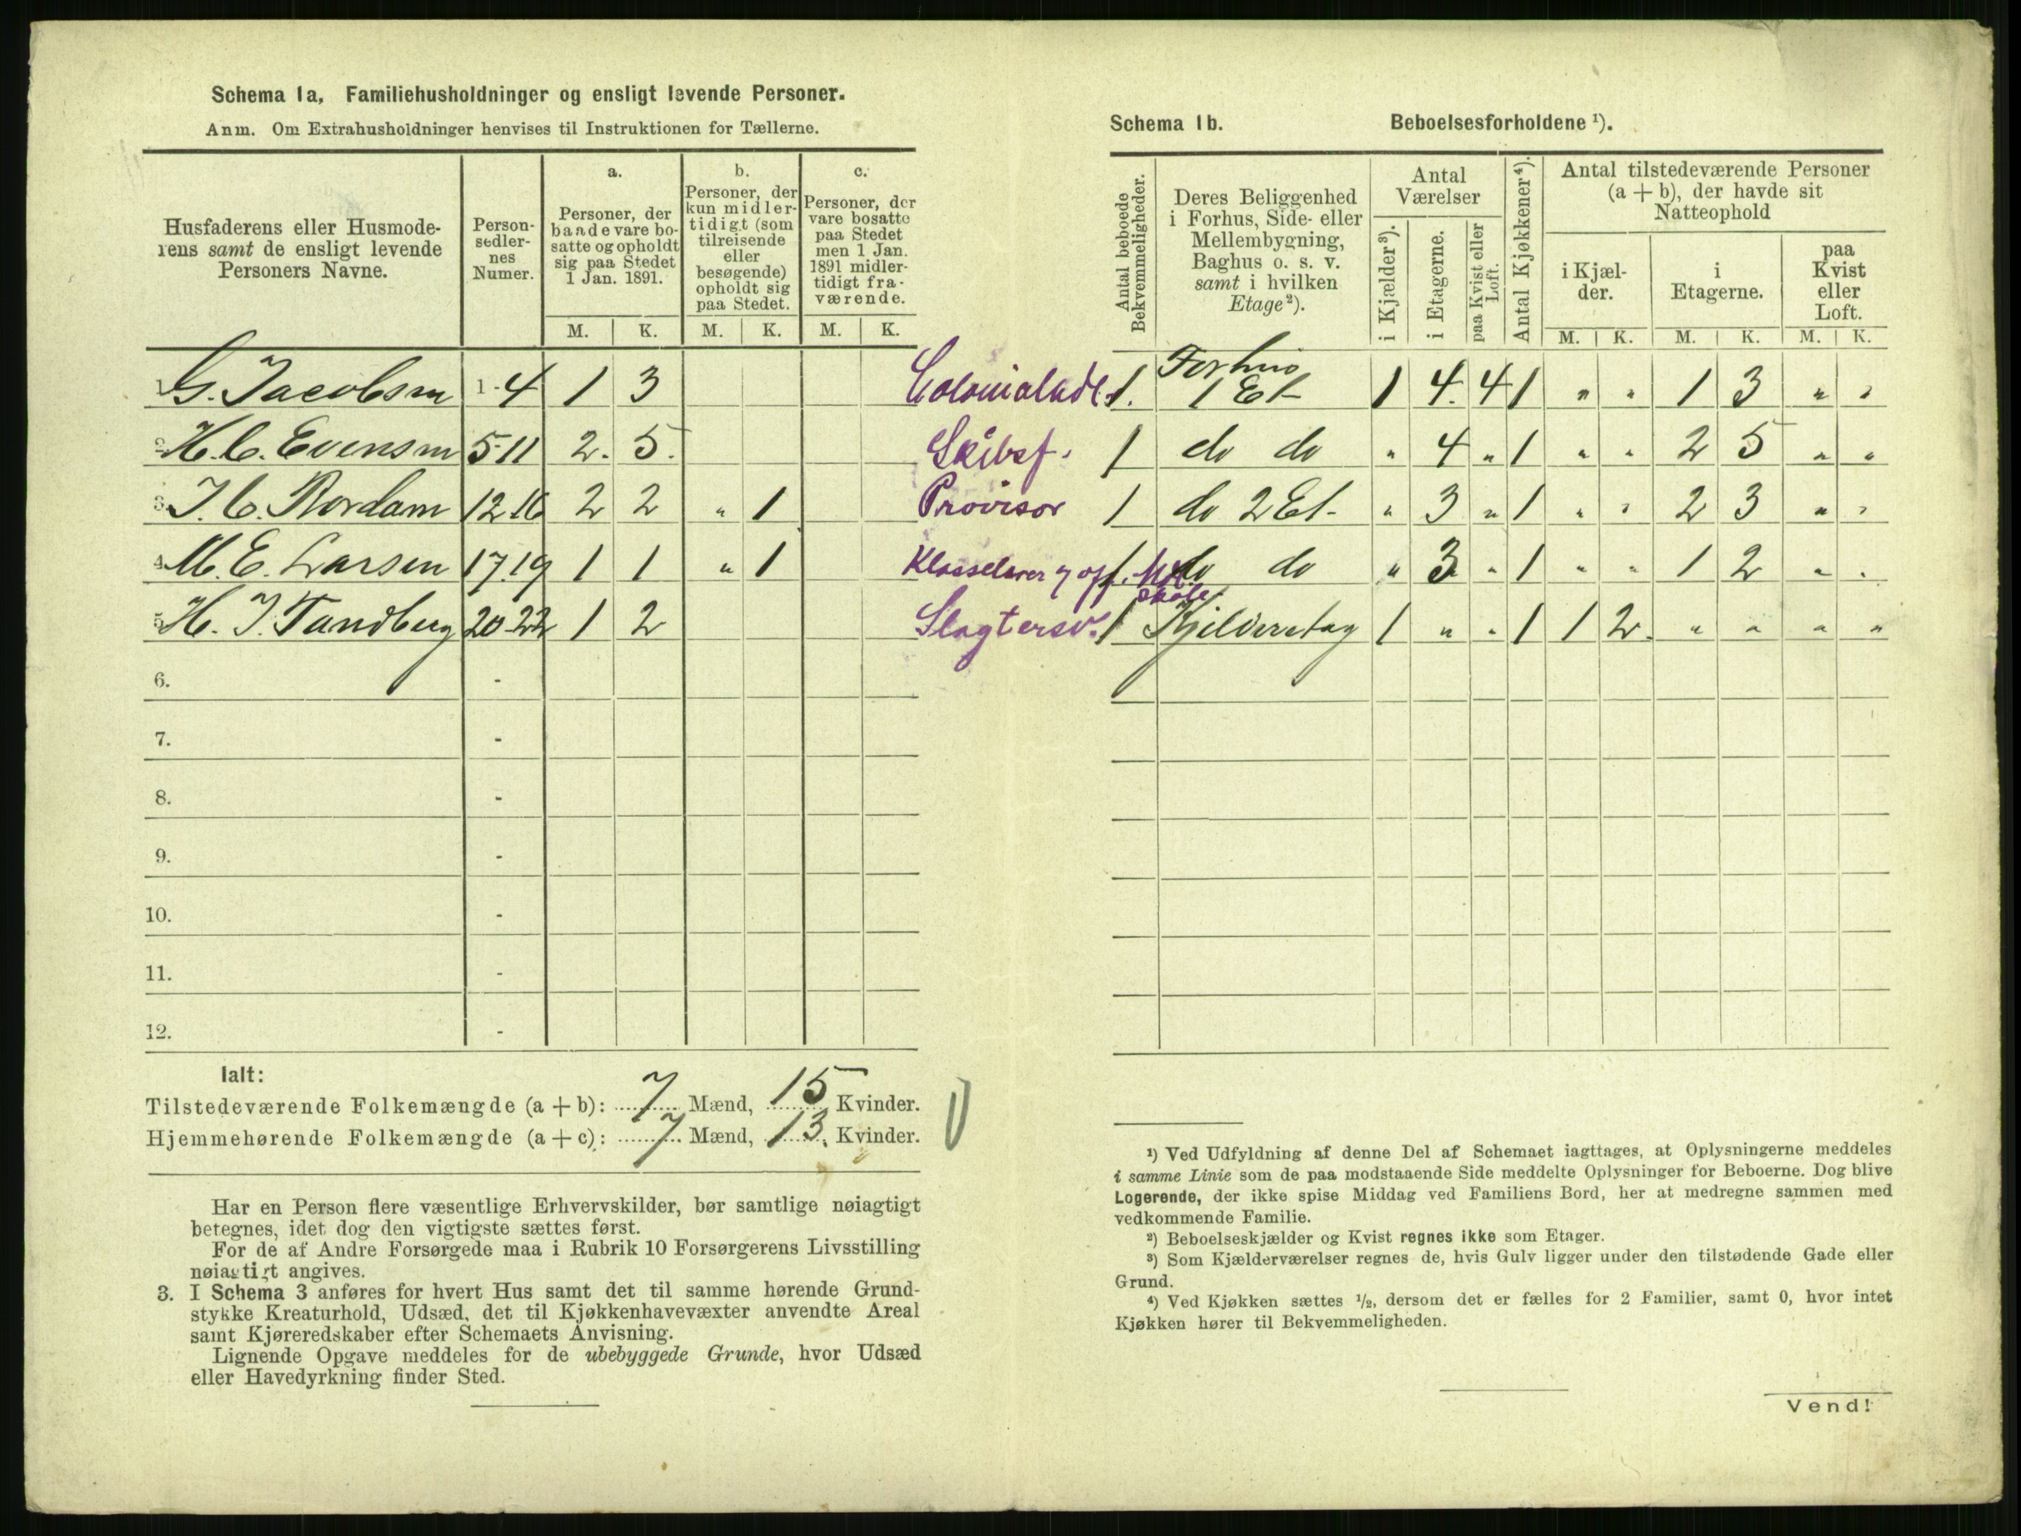 Schema 1a. Familiehusholdninger og ensligt levende Personer.
Anm. Om Extrahusholdninger henvises til Instruktionen for Tællerne.
Husfaderens eller Husmoderens samt de ensligt levende Personers Navne.
Personsedlernes Numer.
a. Personer, der baade vare bosatte og opholdt sig paa Stedet 1 Jan. 1891.
b. Personer, der kun midlertidigt (som tilreisende eller besøgende) opholdt sig paa Stedet.
c. Personer, der vare bosatte paa Stedet men 1 Jan. 1891 midlertidigt fraværende.
M. K. M. K. M. K.
1. G. Jacobsen 1-4 1 3 Colonialhdl.
2. H. C. Evensen 5-11 2. 5. Skibsf.
3. J. C. Rordam 12-16 2 2 " 1 Provisor
4. M. E. Larsen 17-19 1 1 " 1 Klasselærer
5. H. J. Tandberg 20-22 1 2 Slagtersv.
6. -
7. -
8. -
9. -
10. -
11. -
12. -
Ialt:
Tilstedeværende Folkemængde (a + b): 7 Mænd, 15 Kvinder.
Hjemmehørende Folkemængde (a + c): 7 Mænd, 13. Kvinder.
Har en Person flere væsentlige Erhvervskilder, bør samtlige nøiagtigt
betegnes, idet dog den vigtigste sættes først.
For de af Andre Forsørgede maa i Rubrik 10 Forsørgerens Livsstilling
nøiagtigt angives.
3. I Schema 3 anføres for hvert Hus samt det til samme hørende Grund-
stykke Kreaturhold, Udsæd, det til Kjøkkenhavevæxter anvendte Areal
samt Kjøreredskaber efter Schemaets Anvisning.
Lignende Opgave meddeles for de ubebyggede Grunde, hvor Udsæd
eller Havedyrkning finder Sted.
Schema 1b. Beboelsesforholdene ¹).
Antal beboede Bekvemmeligheder.
Deres Beliggenhed i Forhus, Side- eller Mellembygning, Baghus o. s. v. samt i hvilken Etage²).
Antal Værelser
i Kjælder³).
i Etagerne.
paa Kvist eller Loft.
Antal Kjøkkener⁴).
Antal tilstedeværende Personer (a + b), der havde sit Natteophold
i Kjælder.
i Etagerne.
paa Kvist eller Loft.
M. K. M. K. M. K.
1. Forhus 1 Et 1 4. 4 1 " " 1 3 " "
1 do do " 4 " 1 " " 2 5 " "
1 do 2 Et " 3 " 1 " " 2 3 " "
1 do do " 3 " 1 " " 1 2 " "
1 Kjelderetag 1 " " 1 1 2. " " " "
¹) Ved Udfyldning af denne Del af Schemaet iagttages, at Oplysningerne meddeles
i samme Linie som de paa modstaaende Side meddelte Oplysninger for Beboerne. Dog blive
Logerende, der ikke spise Middag ved Familiens Bord, her at medregne sammen med
vedkommende Familie.
²) Beboelseskjælder og Kvist regnes ikke som Etager.
³) Som Kjælderværelser regnes de, hvis Gulv ligger under den tilstødende Gade eller
Grund.
⁴) Ved Kjøkken sættes ½, dersom det er fælles for 2 Familier, samt 0, hvor intet
Kjøkken hører til Bekvemmeligheden.
Vend!